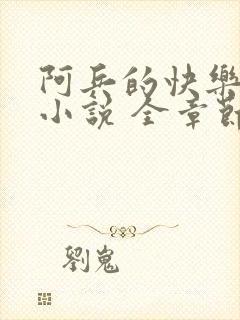 阿兵的快樂
小說 全章節
劉嵬